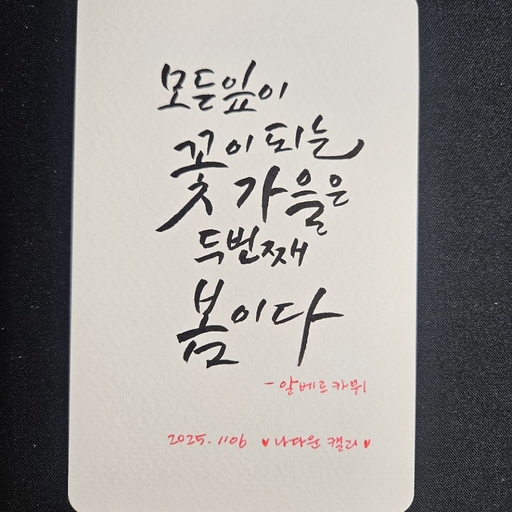 모든 잎이
꽃이 되는
가을은
두번째
봄이다
- 알베르 카뮈
2025. 1106 ♥ 나다운 캘리 ♥